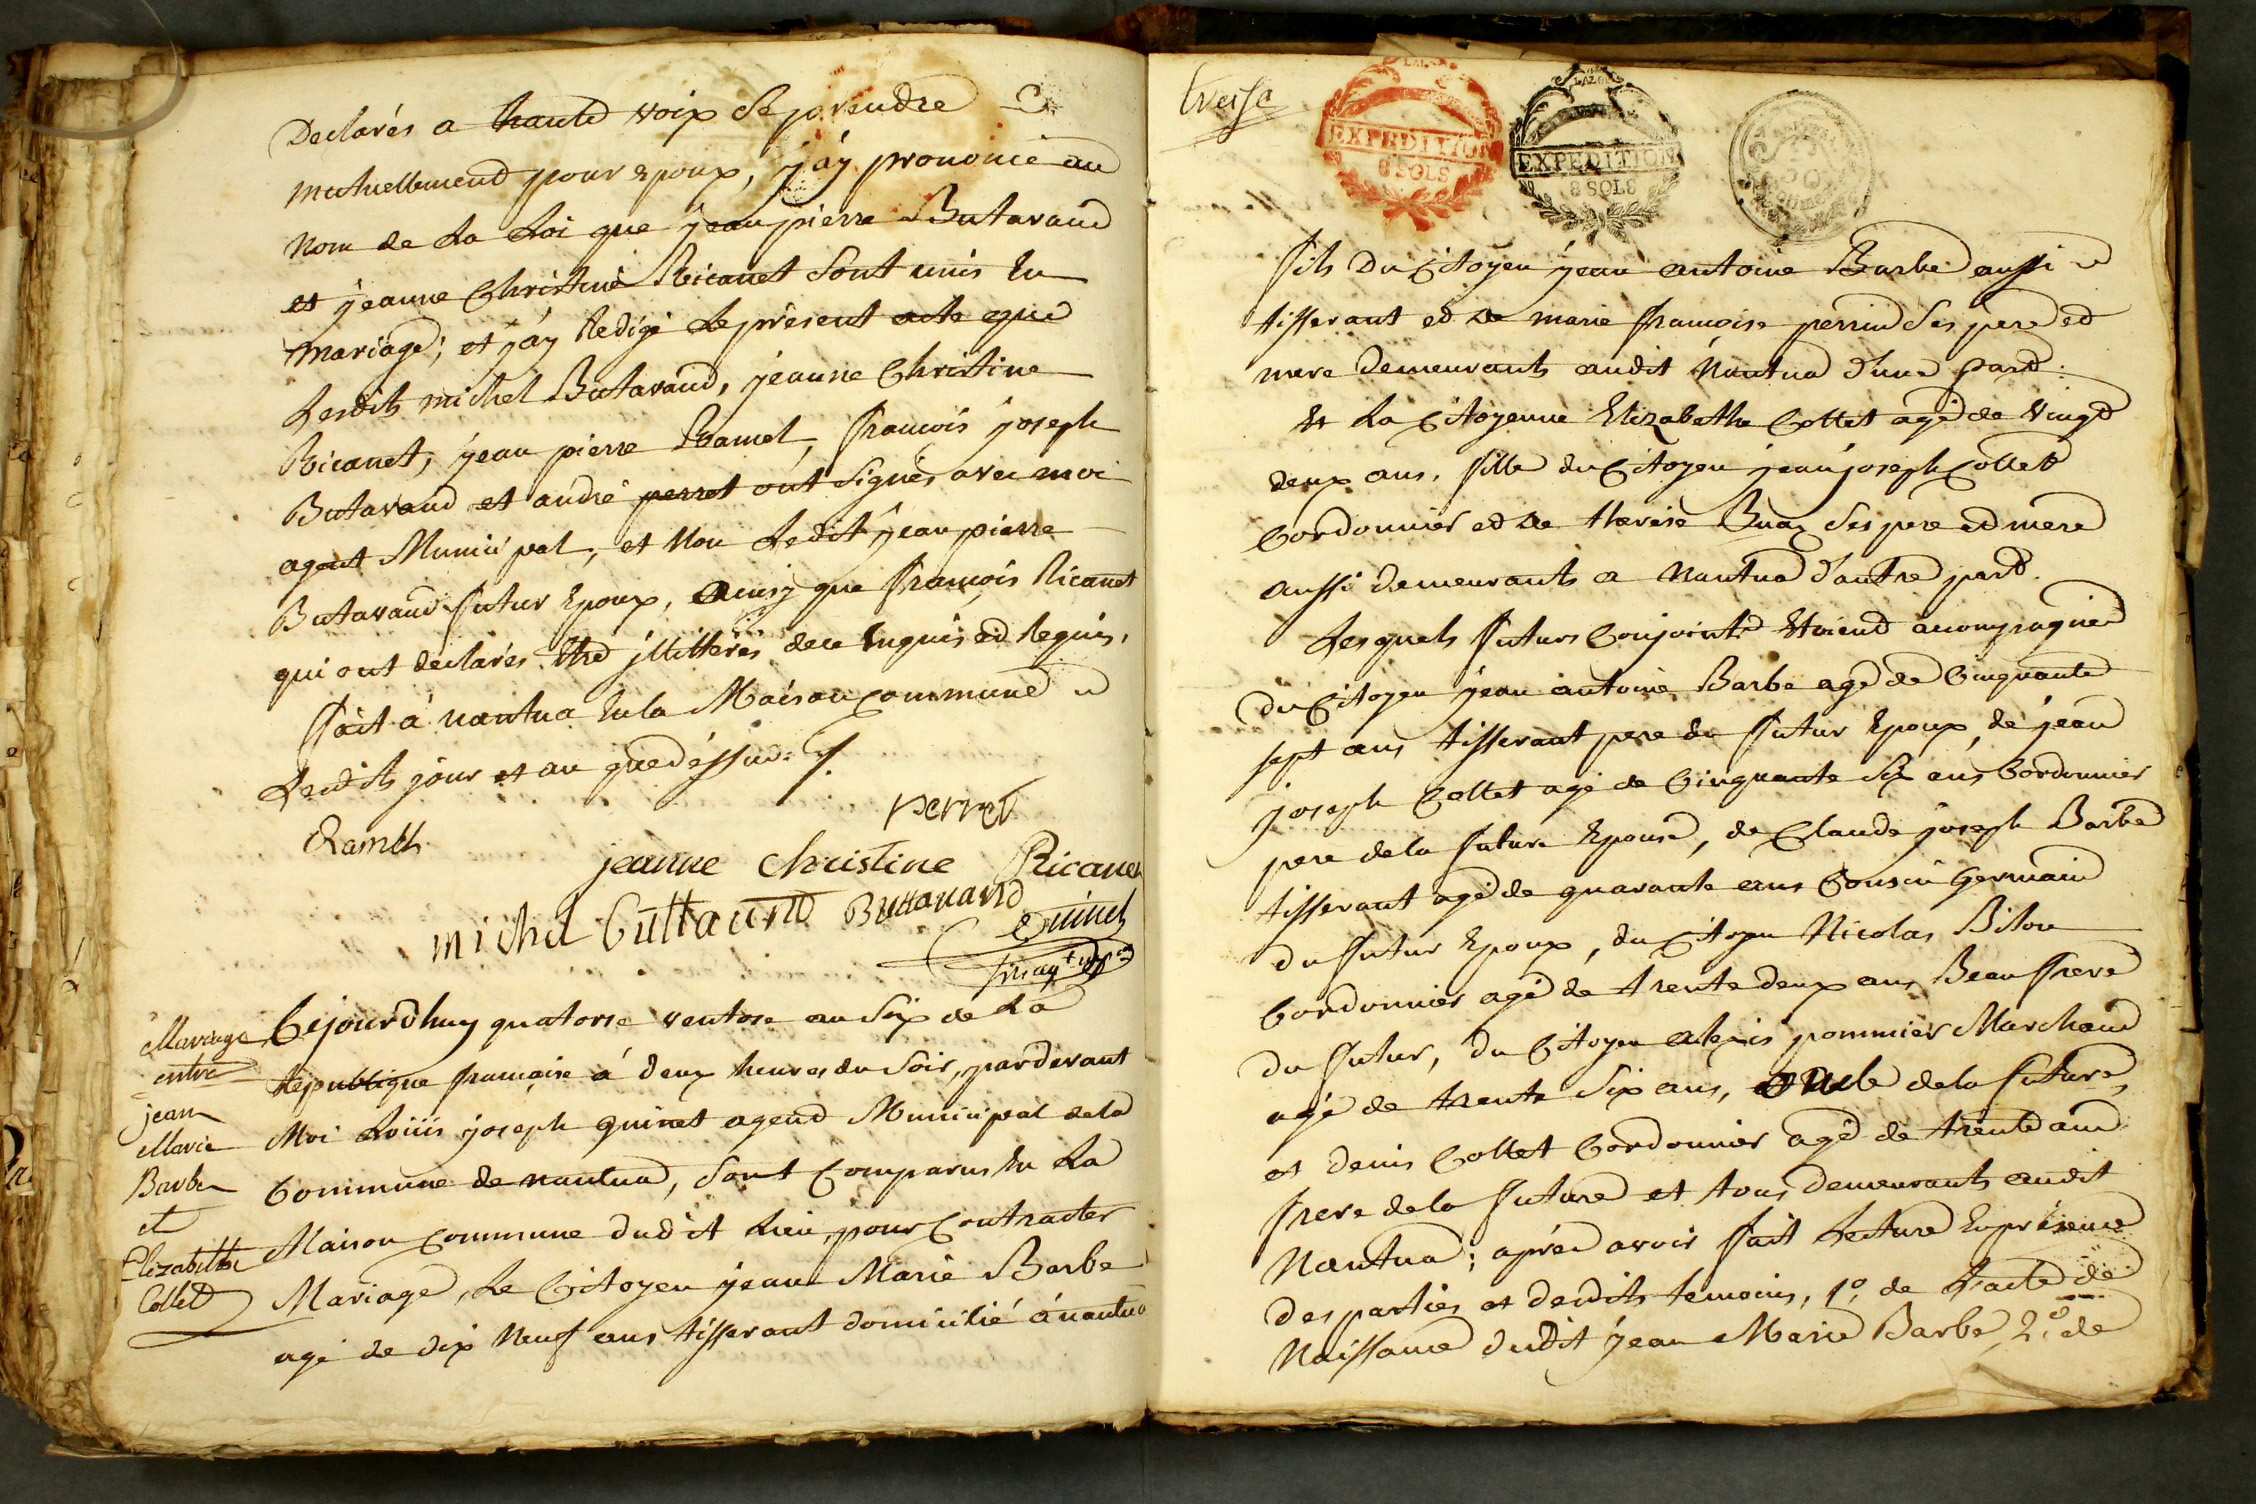 Declarés a haute voix se prendre
mutuellement pour Epoux, j'ay prononcé au
nom de La Loi que jean pierre Butavand
et jeanne Christine Ricanet sont unis En
mariage; et j'ay Redigé Le présent acte que
Lesdits michel Butavand, jeanne Christine
Ricanet, jean pierre Ramel, francois joseph
Butavand et andré perret ont signés avec moi
agent Municipal, et Non Ledit jean pierre
Butavand futur Epoux, Ainsy que francois Ricanet
qui ont declarés Etre jllitterés de ce Enquis et Requis.
fait a nantua En la Maison Commune
Lesdits jour et an que dessus
perret
Ramel
jeanne christine Ricanet
michel Buttavand Buttavand
Quinet
Mariage
entre
jean
Marie
Barbe
et
Elizabethe
Collet
Cejourd'huy quatorse ventose an Six de La
Republique francaise à deux heures du Soir, pardevant
Moi Loüis joseph quinet agent Municipal de la
Commune de nantua, sont Comparus En La
Maison Commune dudit Lieu, pour Contracter
Mariage, Le Citoyen jean Marie Barbe
agé de dix Neuf ans tisserant domicilié à nantua
treise
EXPEDITION
8 SOLS
EXPEDITION
8 SOLS
fils Du Citoyen jean antoine Barbe aussi
tisserant et de marie francoise perrin Ses pere et
mere Demeurants audit Nantua d'une part.
Et La Citoyenne Elizabethe Collet agé de Vingt
deux ans, fille du Citoyen jean joseph Collet
Cordonnier et de therese Buaz Ses pere et mere
aussi demeurants a Nantua d'autre part.
Lesquels futurs Conjoints Etoient accompagnés
du Citoyen jean antoine Barbe agé de Cinquante
sept ans tisserant pere du futur Epoux, de jean
joseph Collet agé de Cinquante Six ans Cordonnier
pere de la future Epouse, de Claude joseph Barbe
tisserant agé de quarante ans Cousin Germain
du futur Epoux, du Citoyen Nicolas Bilon
Cordonnier agé de trente deux ans Beau frere
du futur, du Citoyen alexis pommier Marchand
agé de trente Six ans, oncle de la future,
et denis Collet Cordonnier agé de trente ans
frere de la future et tous demeurants audit
Nantua; aprés avoir fait Lecture En présence
des parties et desdits temoins, 1.º de L'acte de
Naissance dudit jean Marie Barbe, 2.º de